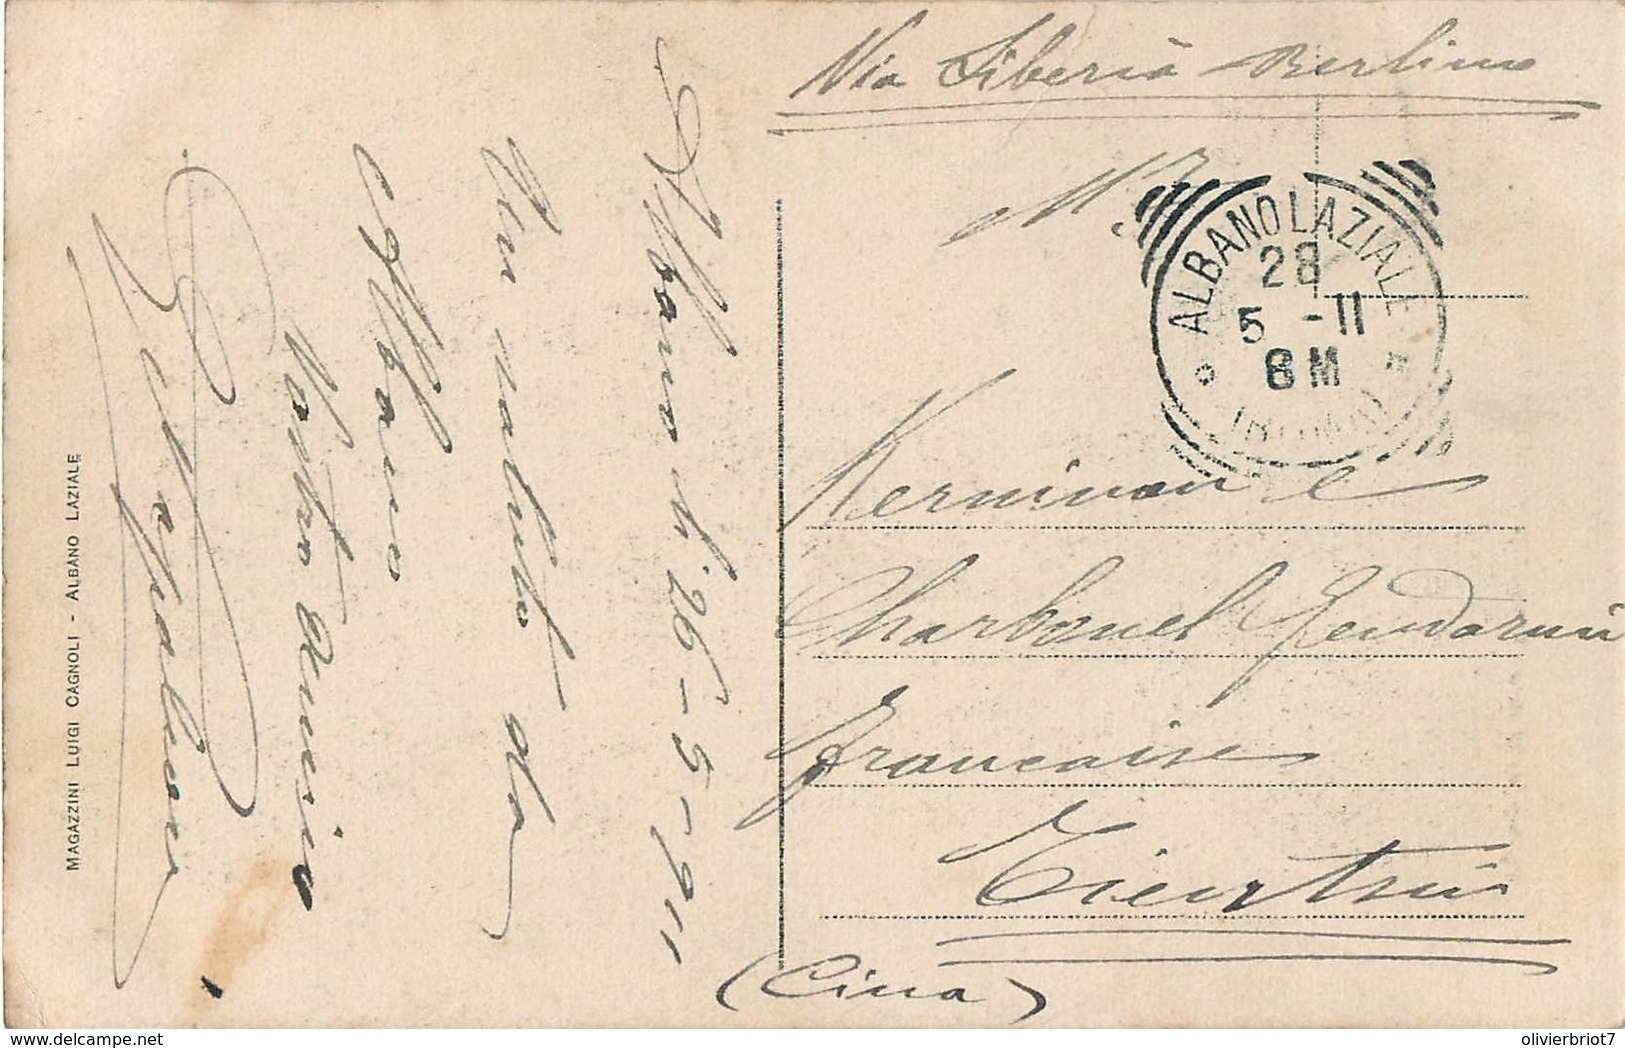 Via Siberia Berlino
M.
ALBANO LAZIALE
28
5 -11
8 M
Kerninon e
Charbonel Gendarmi
Francaise
Tientsin
(Cina)
Albano li 26-5-911
Un saluto da
Albano
Vostro Amico
MAGAZZINI LUIGI CAGNOLI - ALBANO LAZIALE
delcampe.net
olivierbriot7